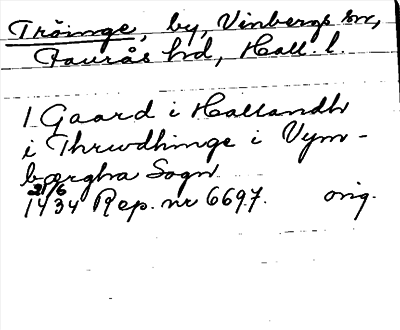 Tröinge, by, Vinbergs sn,
Faurås hd, Hall. l.
1 Gaard i Hallandh
i Thrudhinge i Vym-
bærgha Sogn
21/6
1434 Rep. nr 6697. orig.